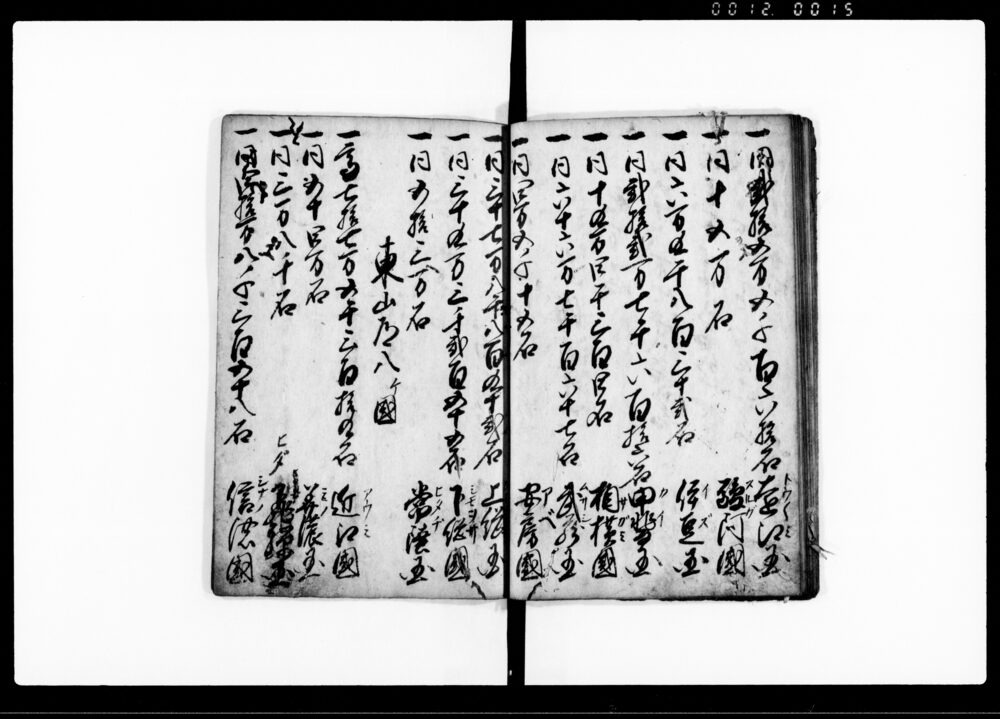 0012.0015
一同弐拾五万五千百六拾石 遠江国 トウトウミ
一同十五万石 駿河國 スルガ
一同六万五千八百三十弐石 伊豆国 イズ
一同弐拾弐万七千六百拾六石 甲斐国 カイ
一同十五万四千三百四石 相模國 サガミ
一同六十六万七千百六十七石 武蔵国 ムサシ
一同四万五千十五石 安房國 アベ
一同三十七万八千八百五十弐石 上総国
一同三十五万三千弐百五十五石 下総國 シモヲサ
一同五拾三万石 常陸国 ヒタチ
東山道八ケ國
一高七拾七万五千三百拾五石 近江國 アウミ
一同五十四万石 美濃国 ミノ
一同三万八千石 飛騨国 ヒダ
一同 拾万八千三百五十八石 信濃國 シナノ